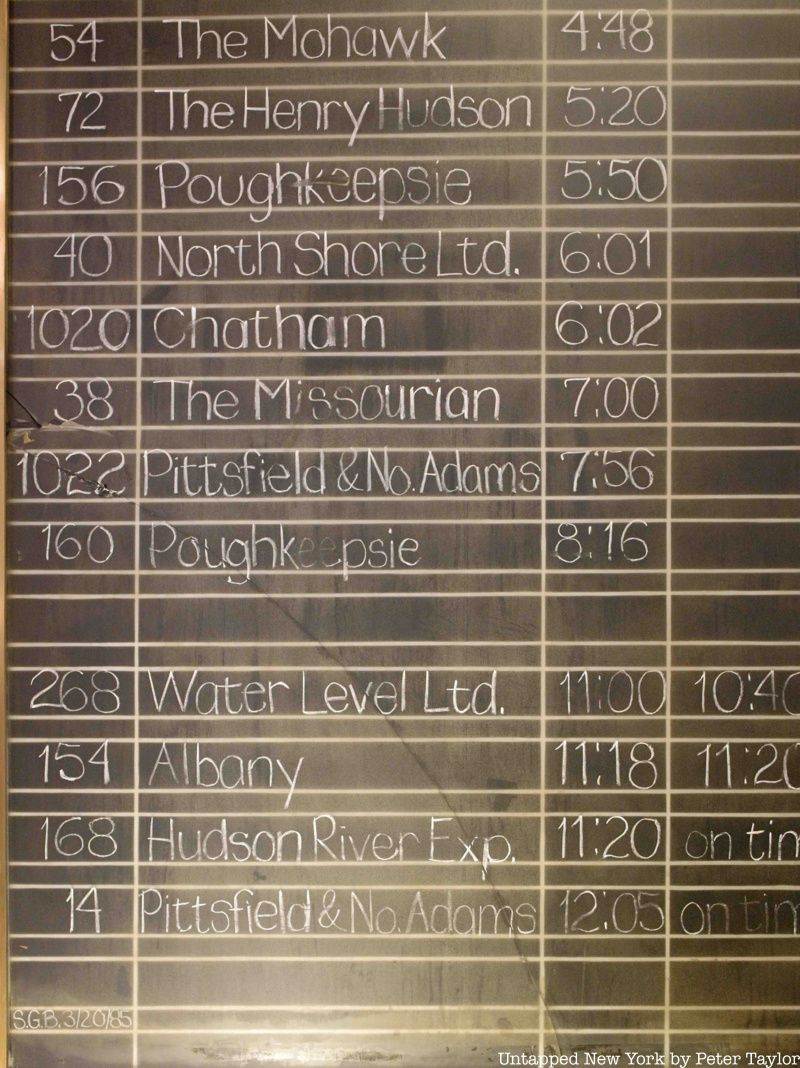 54 The Mohawk 4:48
72 The Henry Hudson 5:20
156 Poughkeepsie 5:50
40 North Shore Ltd. 6:01
1020 Chatham 6:02
38 The Missourian 7:00
1022 Pittsfield & No. Adams 7:56
160 Poughkeepsie 8:16
268 Water Level Ltd. 11:00 10:40
154 Albany 11:18 11:20
168 Hudson River Exp. 11:20 on tim
14 Pittsfield & No. Adams 12:05 on tim
S.G.B. 3/20/85
Untapped New York by Peter Taylor